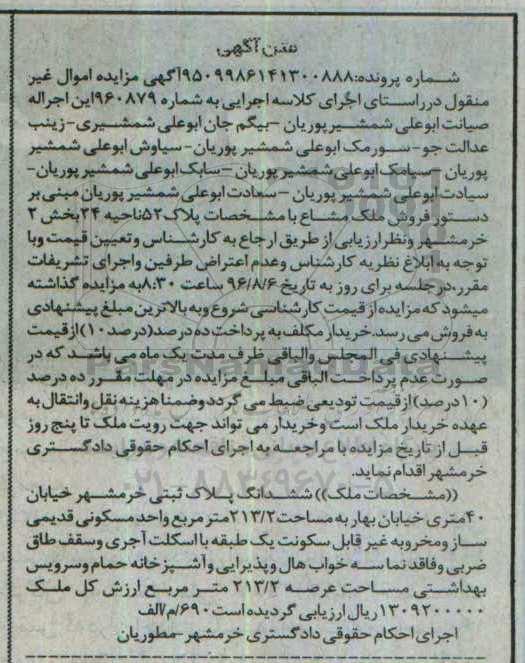 متن آگهی
شماره پرونده:۹۵۰۹۹۸۶۱۴۱۳۰۰۸۸۸آگهی مزایده اموال غیر
منقول درراستای اجرای کلاسه اجرایی به شماره ۹۶۰۸۷۹این اجراله
صیانت ابوعلی شمشیرپوریان –بیگم جان ابوعلی شمشیری-زینب
عدالت جو- سورمک ابوعلی شمشیر پوریان- سیاوش ابوعلی شمشیر
پوریان –سیامک ابوعلی شمشیر پوریان –سابک ابوعلی شمشیر پوریان-
سیادت ابوعلی شمشیر پوریان –سعادت ابوعلی شمشیر پوریان مبنی بر
دستور فروش ملک مشاع با مشخصات پلاک۵۲ناحیه ۲۴بخش ۲
خرمشهر ونظرارزیابی از طریق ارجاع به کارشناس وتعیین قیمت وبا
توجه به ابلاغ نظریه کارشناس وعدم اعتراض طرفین واجرای تشریفات
مقرر،درجلسه برای روز به تاریخ ۹۶/۸/۶ ساعت ۸:۳۰به مزایده گذاشته
میشود که مزایده از قیمت کارشناسی شروع وبه بالاترین مبلغ پیشنهادی
به فروش می رسد.خریدار مکلف به پرداخت ده درصد(درصد۱۰)ازقیمت
پیشنهادی فی المجلس والباقی ظرف مدت یک ماه می باشد که در
صورت عدم پرداخت الباقی مبلغ مزایده در مهلت مقرر ده درصد
(۱۰درصد)ازقیمت تودیعی ضبط می گردد وضمنا هزینه نقل وانتقال به
عهده خریدار ملک است وخریدار می تواند جهت رویت ملک تا پنج روز
قبل از تاریخ مزایده با مراجعه به اجرای احکام حقوقی دادگستری
خرمشهر اقدام نماید.
((مشخصات ملک)) ششدانگ پلاک ثبتی خرمشهر خیابان
۴۰متری خیابان بهار به مساحت۲۱۳/۲متر مربع واحد مسکونی قدیمی
ساز ومخروبه غیر قابل سکونت یک طبقه با اسکلت آجری وسقف طاق
ضربی وفاقد نما سه خواب هال وپذیرایی وآشپزخانه حمام وسرویس
بهداشتی مساحت عرصه ۲۱۳/۲ متر مربع ارزش کل ملک
۱۳۰۹۲۰۰۰۰۰ریال ارزیابی گردیده است ۶۹۰/م/الف
اجرای احکام حقوقی دادگستری خرمشهر-مطوریان
ParsNamadData
۰۲۱-۸۸۳۴۹۶۷۰-۵